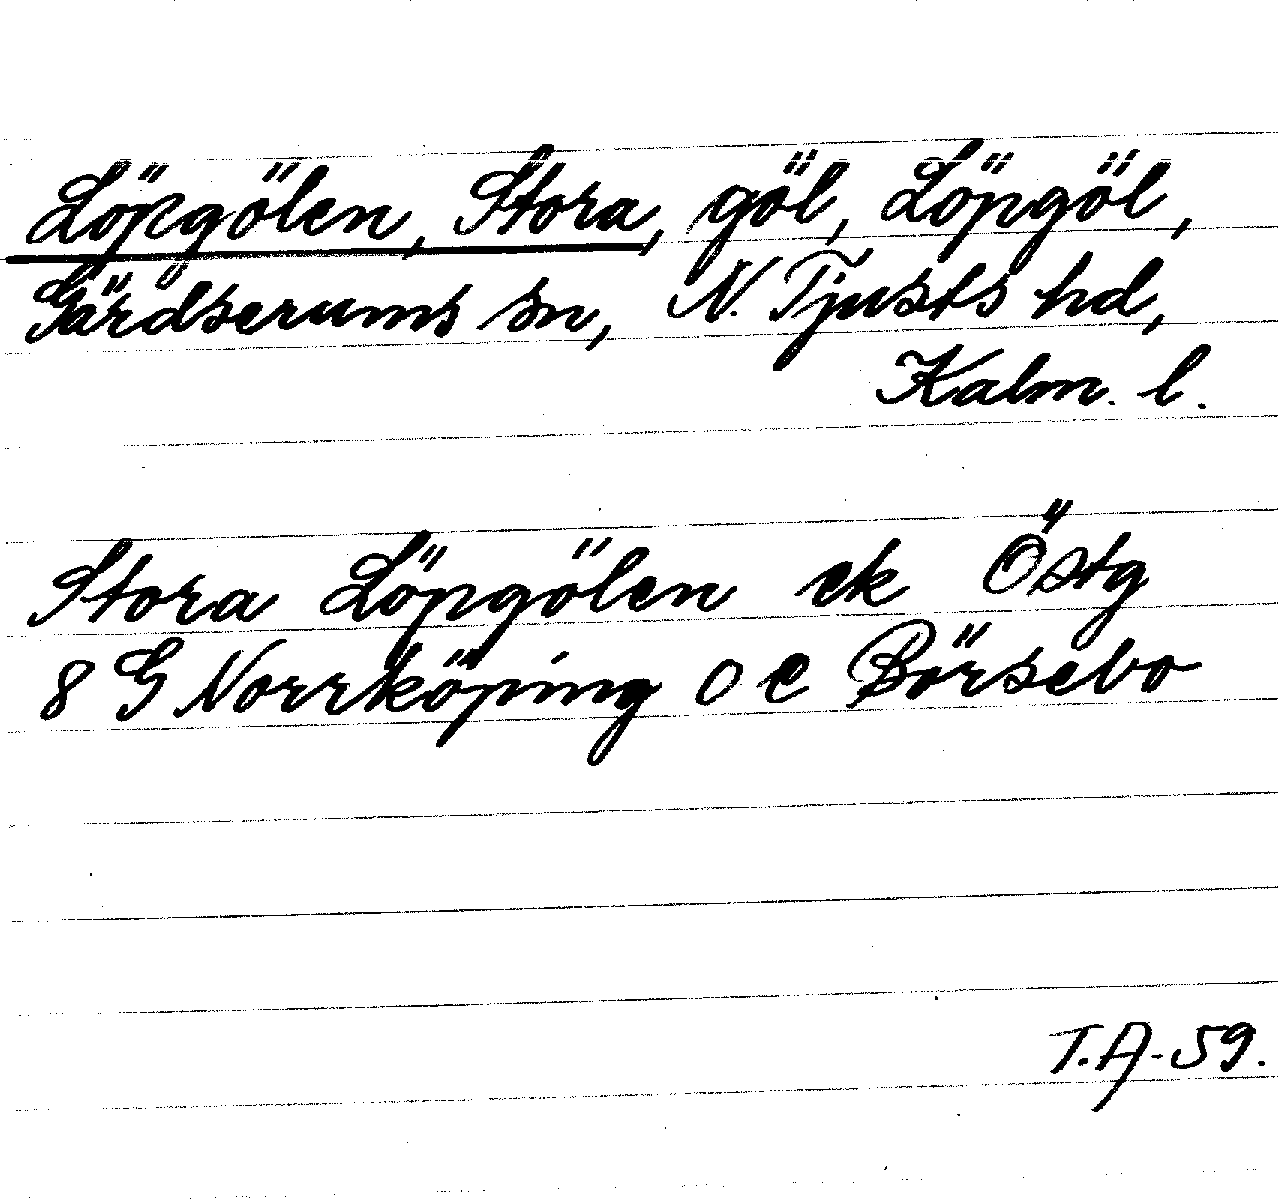 Löpgölen, Stora, göl, Löpgöl,
Gärdserums sn, N. Tjusts hd,
Kalm. l.
Stora Löpgölen ek Östg
8 G Norrköping o e Börsebo
T.A-59.